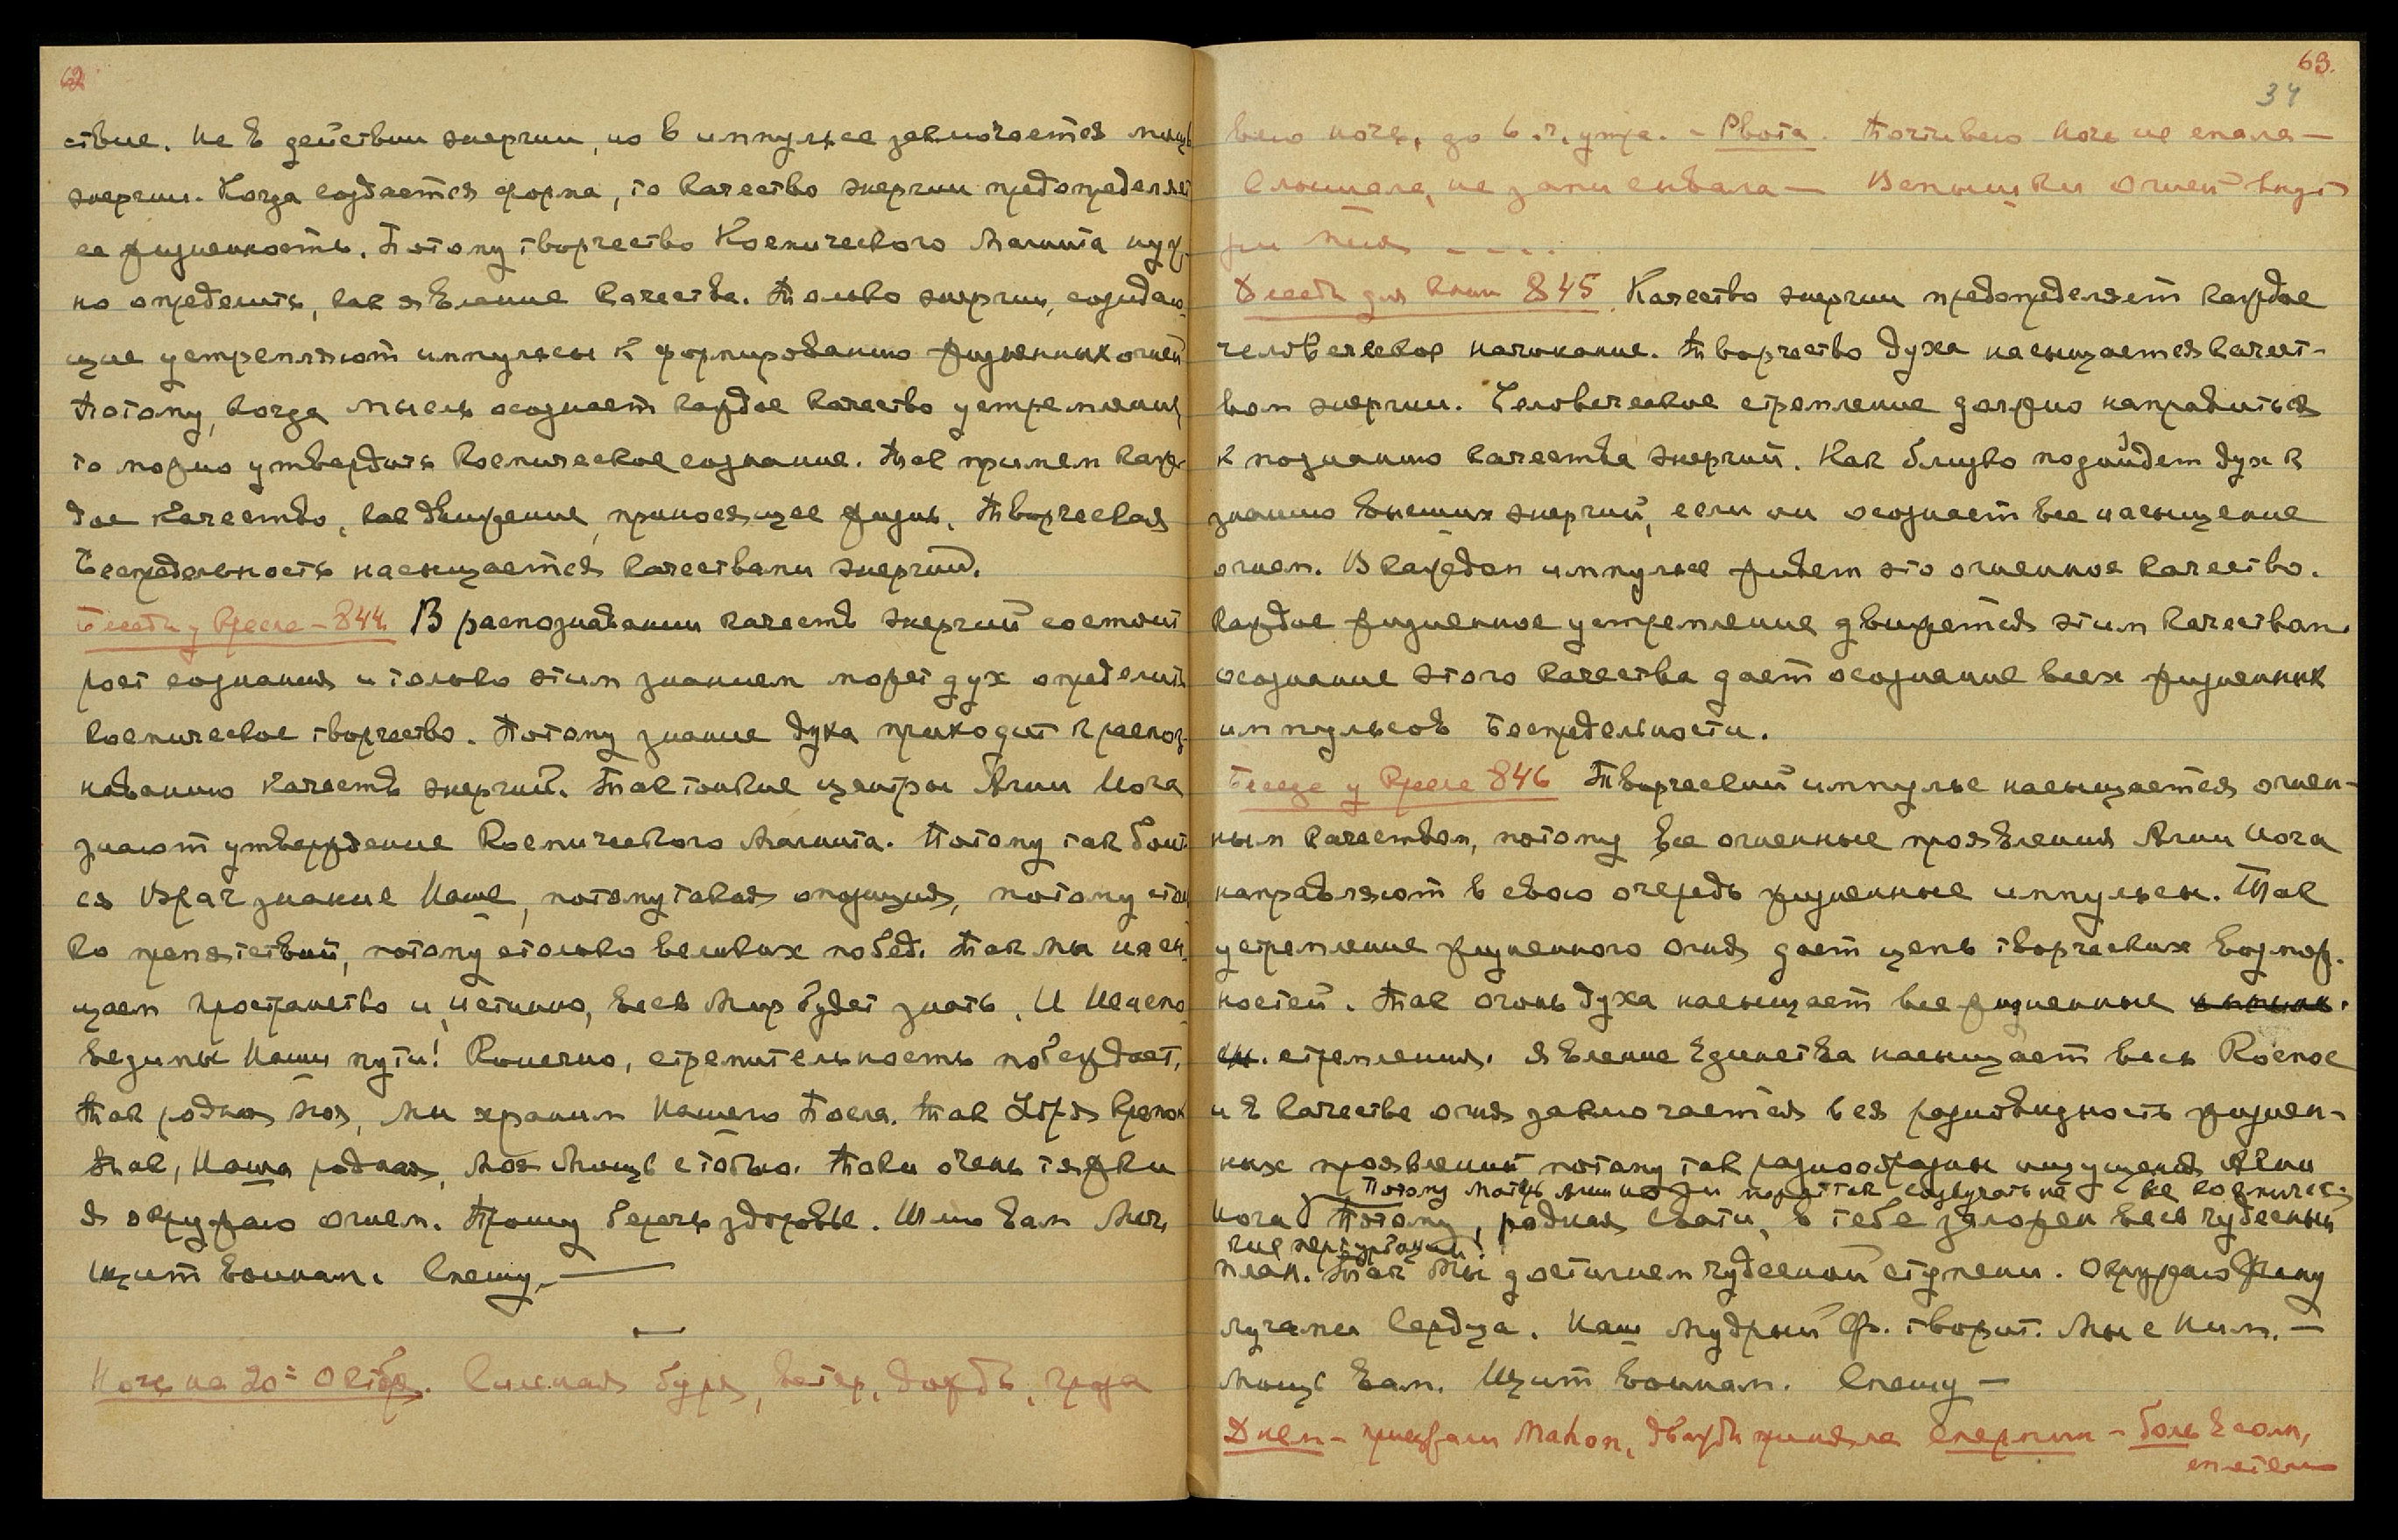 62
ствие. Не в действии энергии, но в импульсе заключается мощь
энергии. Когда создается форма, то качество энергии предопределяет
ее жизненность. Потому творчество Космического Магнита нуж-
но определить, как явление качества. Только энергии, созидаю-
щие устремляют импульсы к формированию жизненных огней
Потому, когда мысль осознает каждое качество устремления,
то можно утвердить космическое сознание. Так примем каж-
дое качество, как движение, приносящее жизнь. Творческая
Беспредельность насыщается качествами энергий.
Беседа у Кресла - 844 В распознавании качеств энергий состоит
рост сознания и только этим знанием может дух определить
космическое творчество. Потому знание духа приходит к распоз-
наванию качеств энергий. Так тонкие центры Агни Йога
знают утверждение Космического Магнита. Потому так боит-
ся враг знание Наше, потому такая оппозиция, потому столь
ко препятствий, потому столько великих побед. Так мы насы-
щаем пространство и, истинно, весь Мир будет знать. И Неиспо-
ведимы Наши пути! Конечно, стремительность побеждает,
Так родная моя, мы храним Нашего Посла. Так Удрая крепок
Так, Наша родная, Моя Мощь с тобою. Токи очень тяжки
Я окружаю огнем. Прошу беречь здоровье. Шлю вам Меч,
щит воинам. Спешу. —
Ночь на 20-е Октбр. Сильная буря, ветер, дождь, гроза
63.
34
всю ночь, до 6.ч. утра. - Рвота. Почти всю ночь не спала —
Слышала, не записывала — Вспышки огней внут-
ри меня - - - -
Беседа для Книги 845. Качество энергии предопределяет каждое
человеческое начинание. Творчество духа насыщается качест-
вом энергии. Человеческое стремление должно направиться
к познанию качества энергий. Как близко подойдет дух к
знанию высших энергий, если он осознает все насыщение
огнем. В каждом импульсе живет это огненное качество.
Каждое жизненное устремление движется этим качеством.
Осознание этого качества дает осознание всех жизненных
импульсов Беспредельности.
Беседа у Кресла 846 Творческий импульс насыщается огнен-
ным качеством, потому все огненные проявления Агни Йога
направляют в свою очередь жизненные импульсы. Так
устремление жизненного огня дает цепь творческих возмож-
ностей. Так огонь духа насыщает все жизненные
стремления. Явление Единства насыщает весь Космос
и в качестве огня заключается вся разновидность жизнен-
ных проявлений потому так разнообразны ощущения Агни
Потому мать Агни Йоги может так созвучать на все космичес-
Йога Потому, родная Свати, в тебе заложен весь чудесный
кие пертурбации.
план. Так Мы достигнем чудесной ступени. Окружаю Жену
лучами Сердца. Наш мудрый Ф. творит. Мы с Ним. —
Мощь вам. Щит воинам. Спешу —
Днем - приезжал Mahon, дважды приняла - боль в солн,